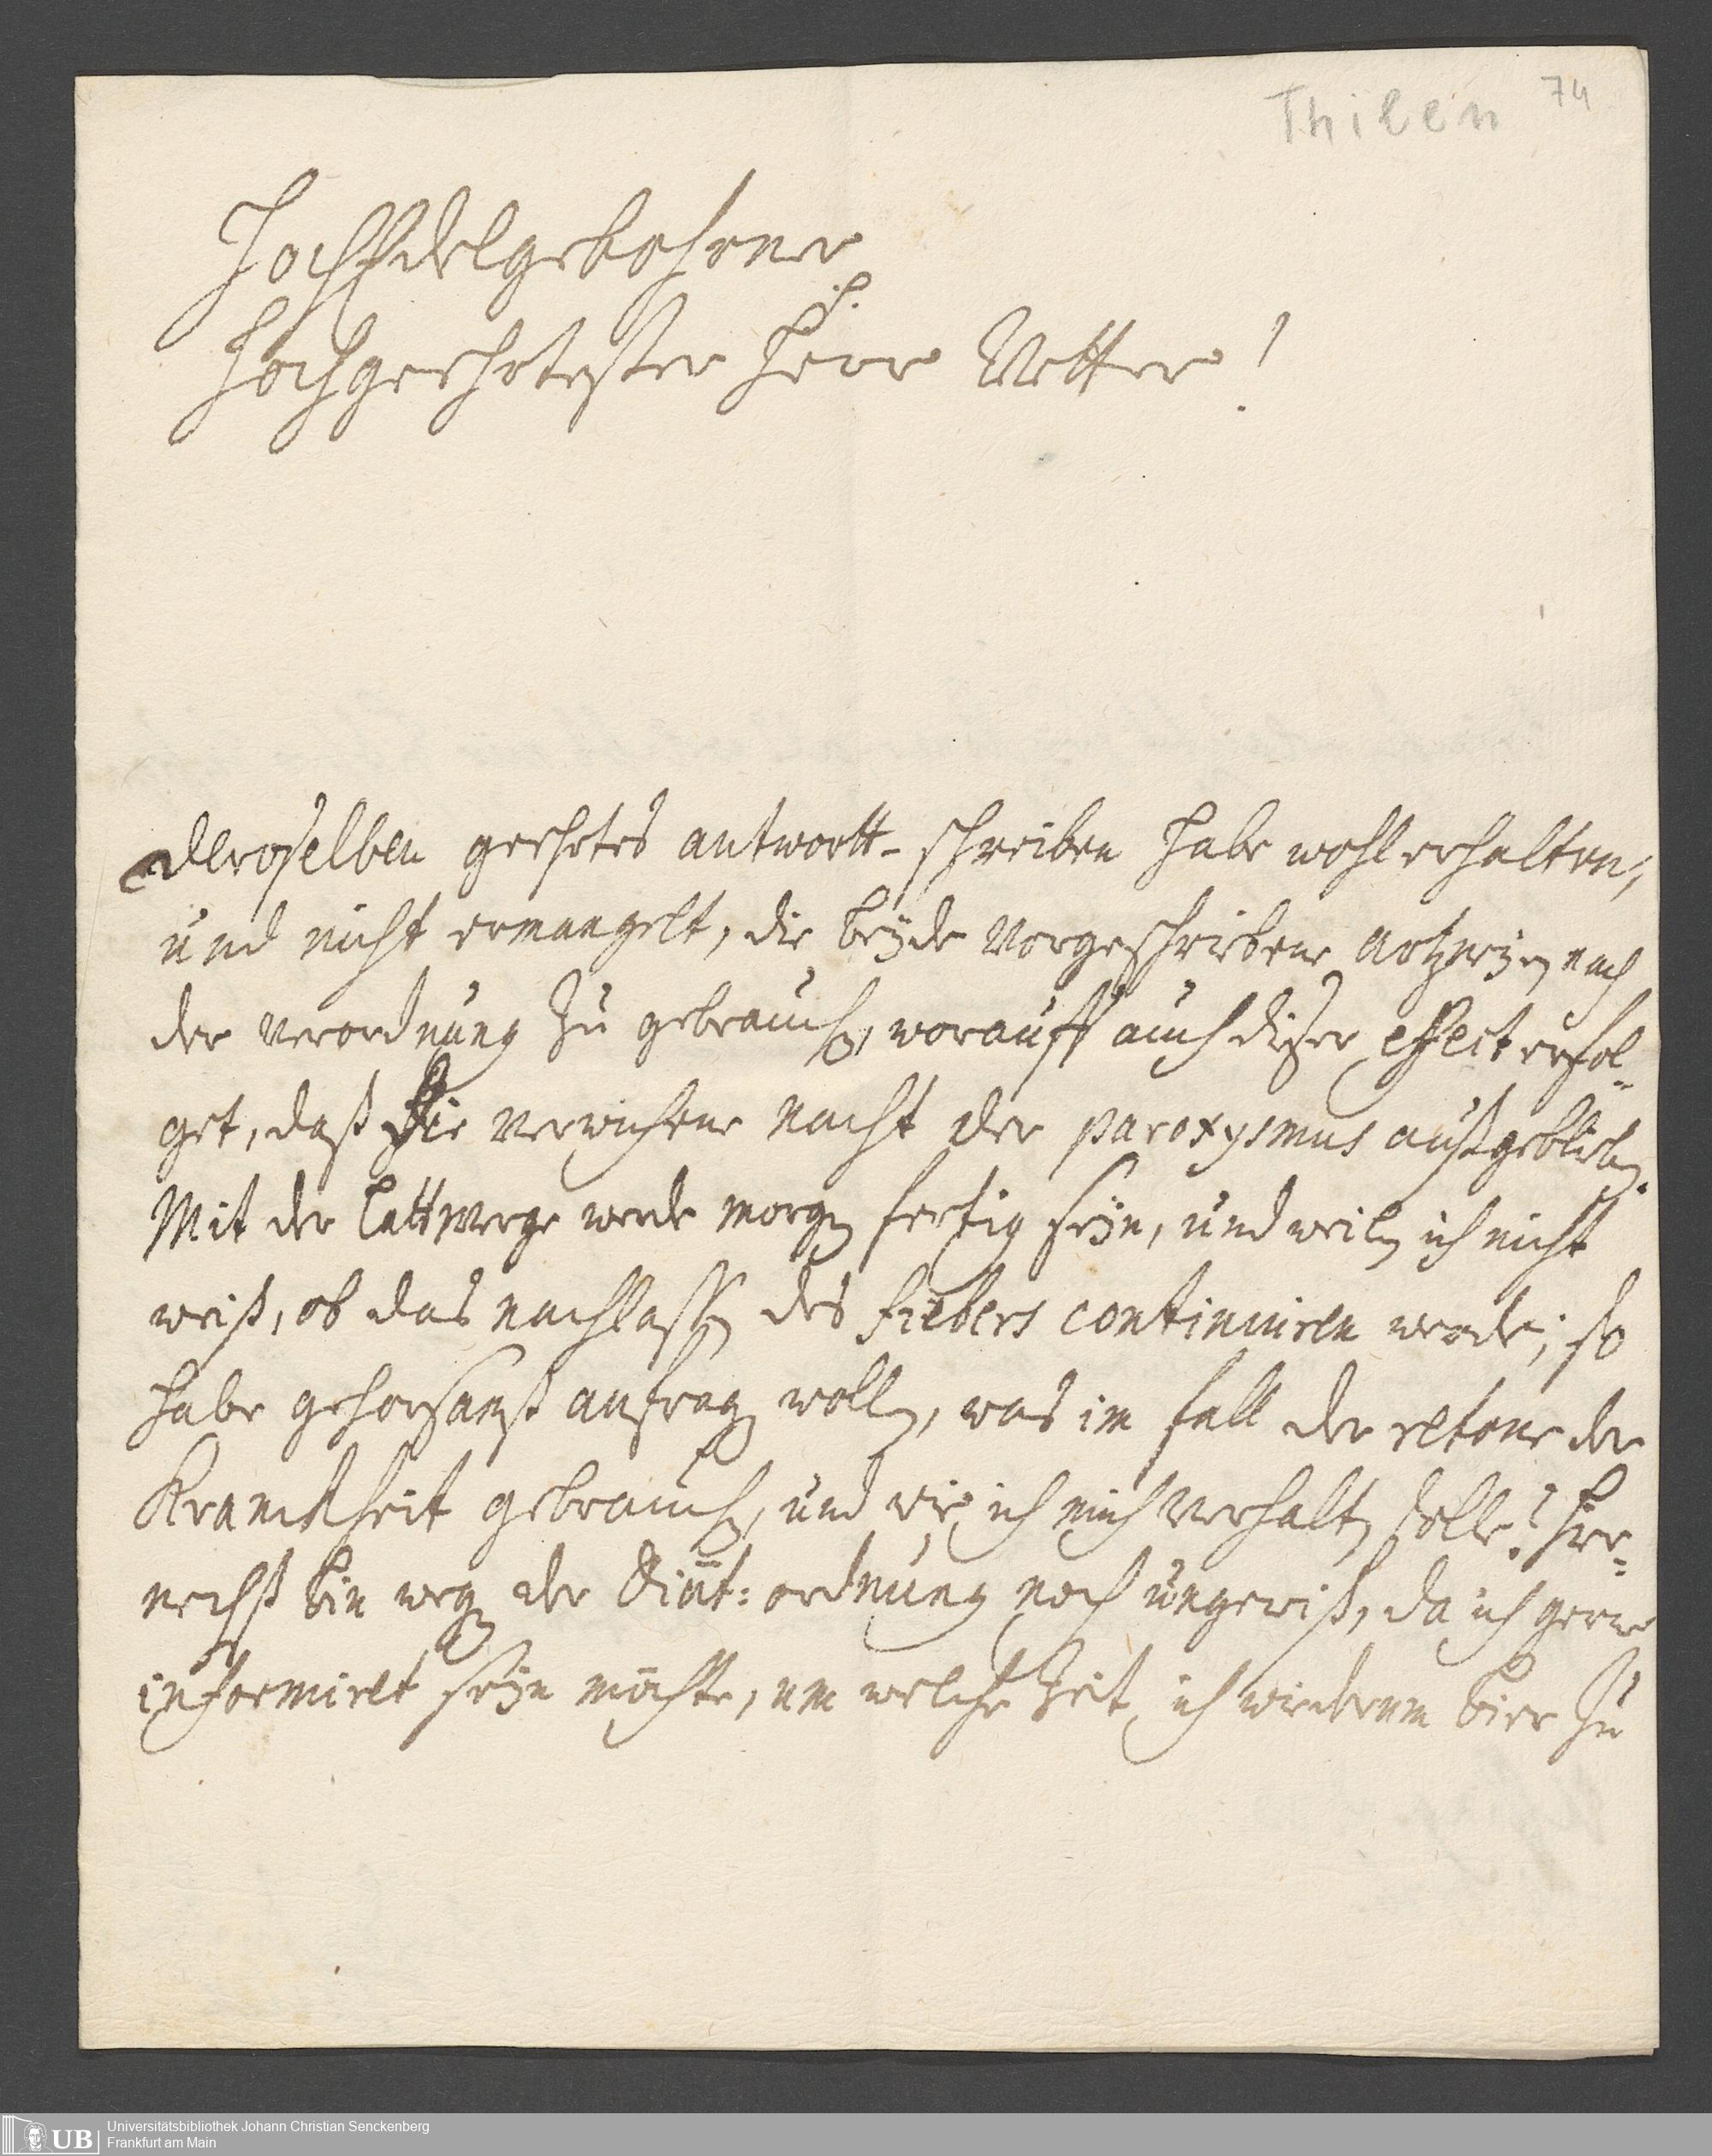 Thilen 74
HochEdelgebohrner
Hochgeehrtester Herr Vetter!
Deroselben geehrtes antwortt-schreiben habe wohl erhalten,
und nicht ermangelt, die beÿde vorgeschriebene artzneÿen nach
der verordnung zu gebrauchen, worauff auch dißer effect erfol-
get, daß die verwichene nacht der paroxysmus außgeblieben.
Mit der Lattwerge werde morgen fertig seÿn, und weilen ich nicht
weiß, ob das nachlassen des fiebers continuiren werde; so
habe gehorsamst anfragen wollen, was im fall der retour der
Kranckheit gebrauchen, und wie ich mich verhalten solle? Hier-
nechst bin wegen der Diät: ordnung noch ungewiß, da ich gerne
informiret seÿn möchte, um welche Zeit ich wiederum bier zu
UB Universitätsbibliothek Johann Christian Senckenberg
Frankfurt am Main